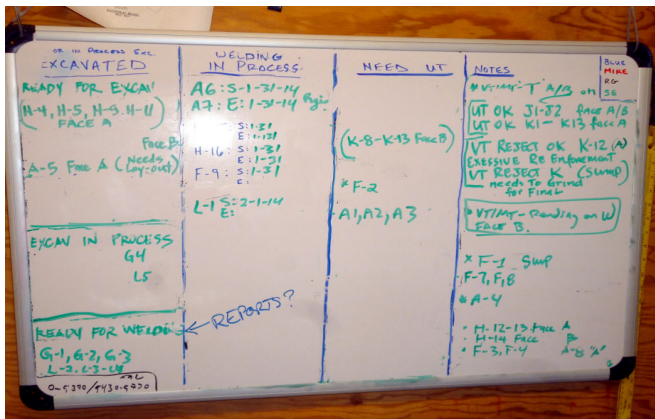 OR IN PROCESS EXC.
EXCAVATED
READY FOR EXCAV
(H-4, H-5, H-9, H-11)
FACE A
Face B
A-5 Face A (Needs
Lay-out)
EXCAV IN PROCESS
G4
L5
READY FOR WELDING
G-1, G-2, G-3
L-2, L-3-L4
0-5370/5430-5720
WELDING
IN PROCESS
A6: S-1-31-14
A7: E: 1-31-14
S: 1-31
E: 1-31
H-16: S: 1-31
E: 1-31
F-9: S: 1-31
E:
L-1 S: 2-1-14
E:
REPORTS?
NEED UT
(K-8-K-13 Face B)
* F-2
A1, A2, A3
NOTES
VT/MT-T A/B on
UT OK J1-J2 face A/B
UT OK K1-K13 face A
VT REJECT OK K-12 (A)
EXESSIVE RE ENFORCEMENT
VT REJECT K (SUMP)
needs To Grind
for Final
* VT/MT-Pending on W
FACE B.
* F-1 Sump
F-7, F,8
* A-4
• H-12-13 face A
• H-14 Face B
• F-3, F-4 A-8 "A"
BLUE
MIKE
RG
SG